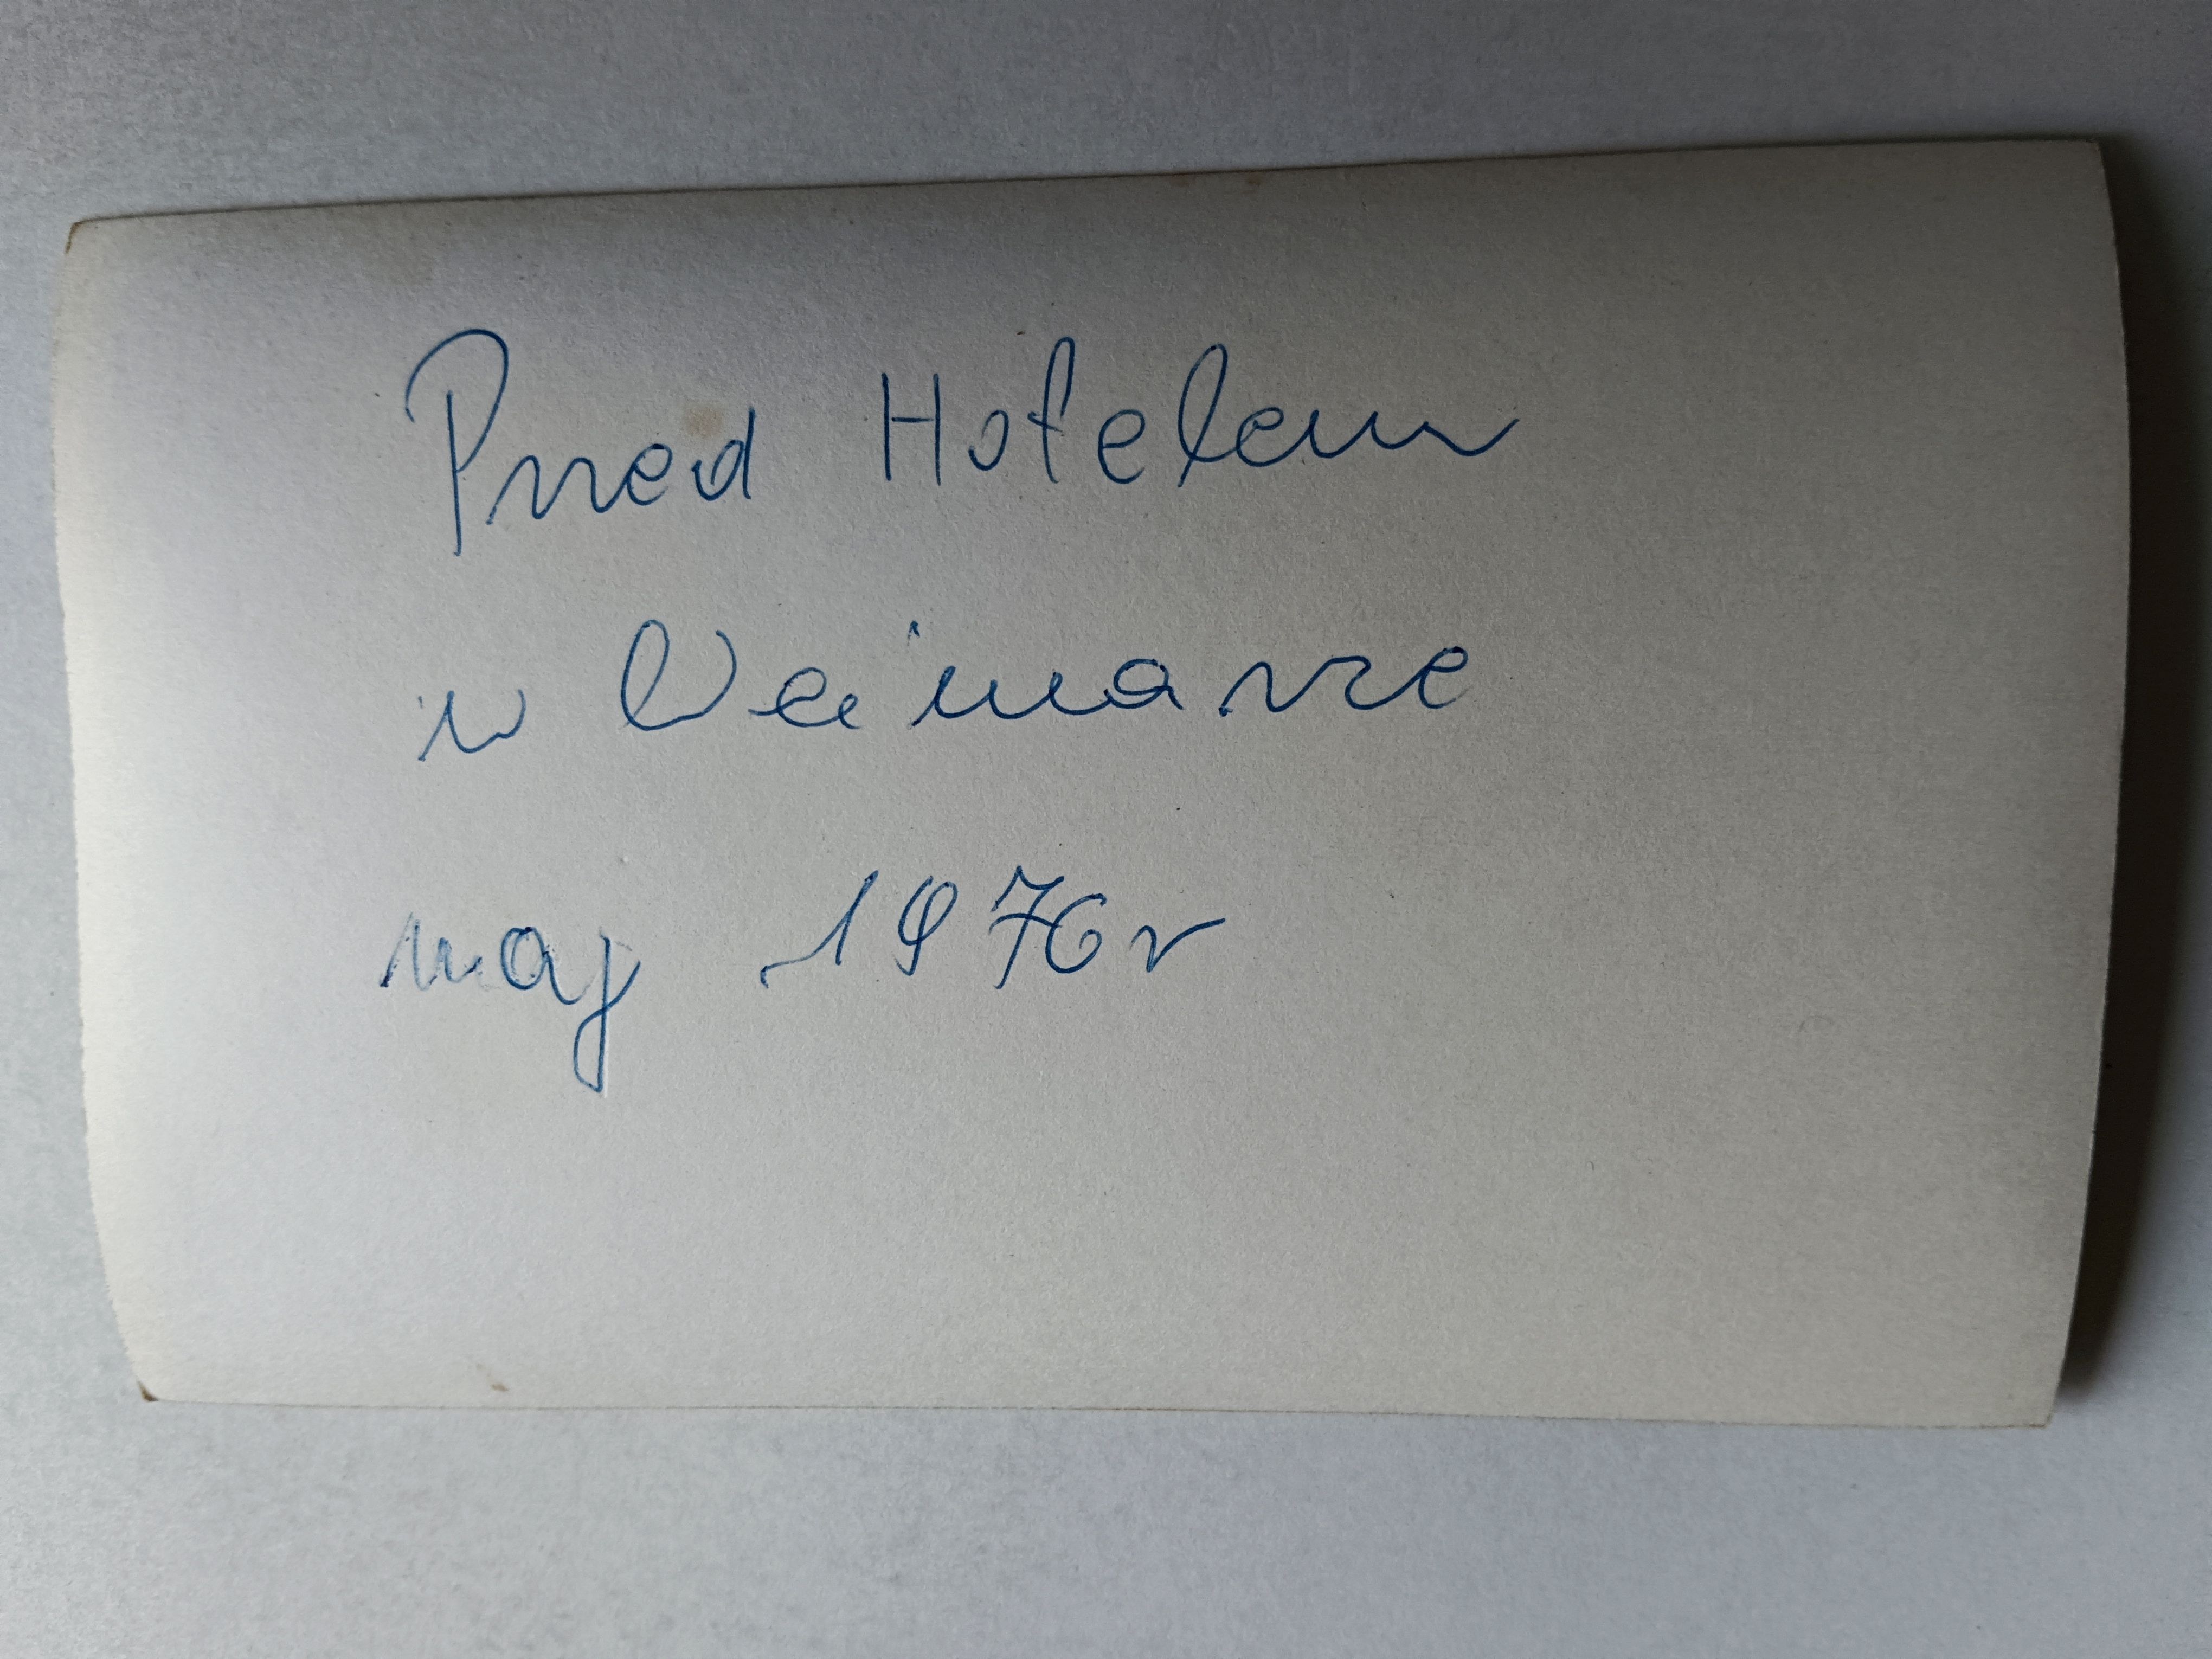 Przed Hotelem
w Weimarze
maj 1976r